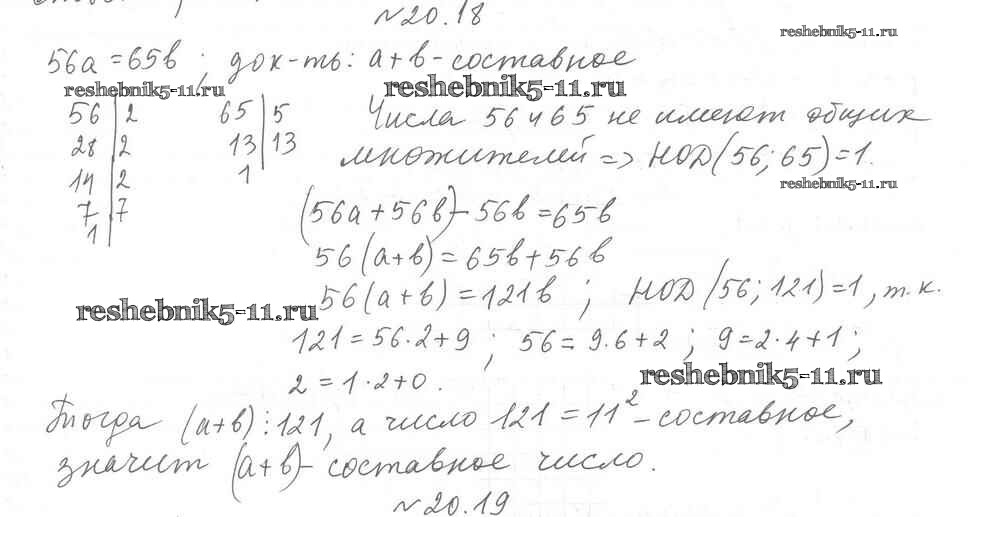 №20.18
reshebnik5-11.ru
56a = 65b ; док-ть: a+b - составное
reshebnik5-11.ru
reshebnik5-11.ru
56 | 2
28 | 2
14 | 2
7 | 7
1
65 | 5
13 | 13
1
Числа 56 и 65 не имеют общих
множителей => НОД(56; 65) = 1.
reshebnik5-11.ru
(56a + 56b) - 56b = 65b
56(a+b) = 65b + 56b
56(a+b) = 121b ; НОД(56; 121) = 1, т.к.
reshebnik5-11.ru
121 = 56·2+9 ; 56 = 9·6+2 ; 9 = 2·4+1 ;
2 = 1·2+0.
reshebnik5-11.ru
Тогда (a+b)⋮121, а число 121 = 11² - составное,
значит (a+b) - составное число.
№20.19